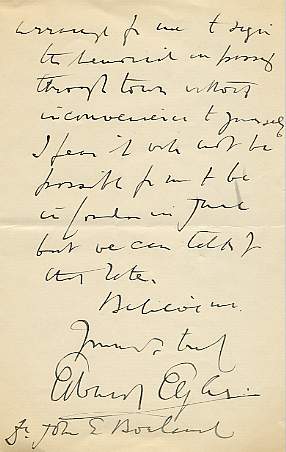 arrange for me to sign
the memorial in passing
through town without
inconvenience to yourself
I fear it will not be
possible for me to be
in London in June
but we can talk of
that later.
Believe me
Yours truly
Edward Elgar
Dr. John E Borland